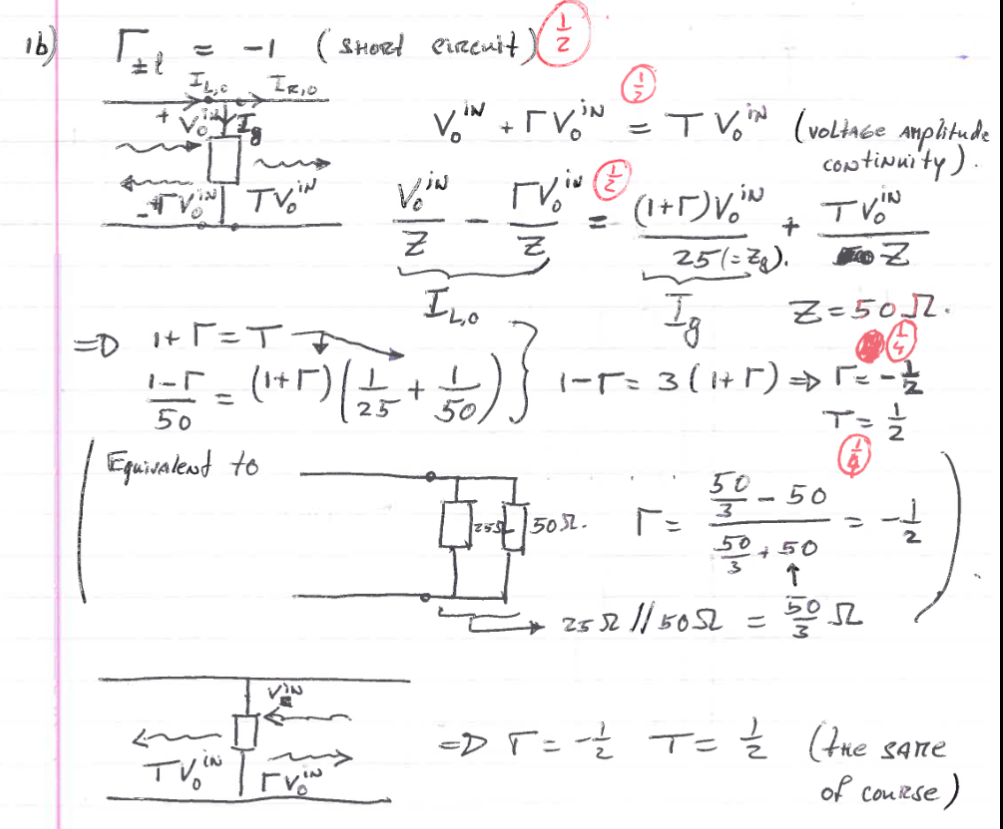 1b) Γ±ℓ = -1 (SHORT CIRCUIT) 1/2
I_L,0 I_R,0
+ V₀^IN I_g
-ΓV₀^IN TV₀^IN
V₀^IN + ΓV₀^IN = T V₀^IN (VOLTAGE AMPLITUDE
1/2
CONTINUITY).
V₀^IN/Z - ΓV₀^IN/Z = (1+Γ)V₀^IN/25(=Z_g). + TV₀^IN/Z
1/2
I_L,0 I_g Z=50Ω.
=> 1+Γ=T
(1-Γ)/50 = (1+Γ)(1/25 + 1/50) } 1-Γ = 3(1+Γ) => Γ=-1/2
1/4
T=1/2
1/4
(Equivalent to
25Ω 50Ω. Γ = (50/3 - 50)/(50/3 + 50) = -1/2)
→ 25Ω//50Ω = 50/3 Ω
V^IN
=> Γ=-1/2 T=1/2 (THE SAME
TV₀^IN ΓV₀^IN
of course)